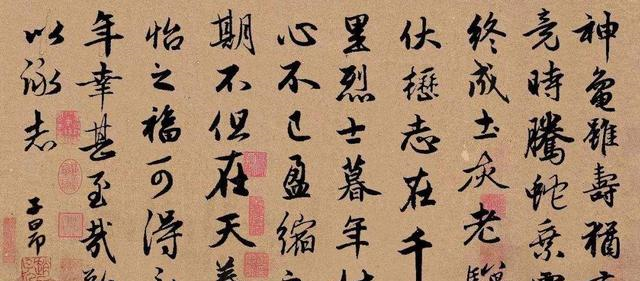 神龜雖壽猶
竟時騰蛇乗
終成土灰老驥
伏櫪志在千
里烈士暮年
心不已盈縮
期不但在天養
怡之福可得
年幸甚至哉歌
以詠志
子昂